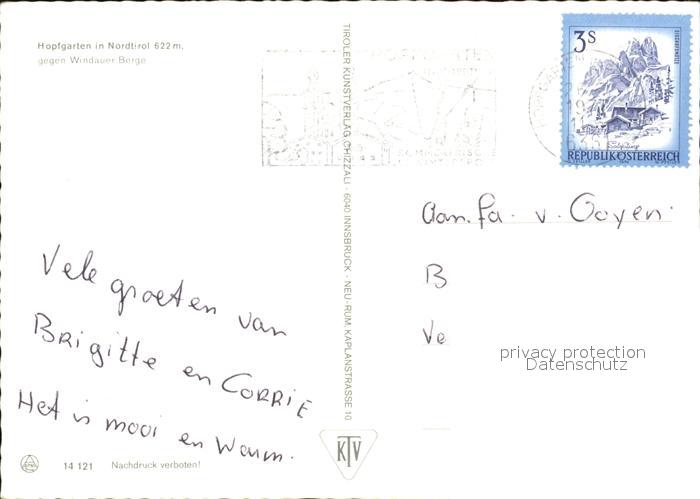 Hopfgarten in Nordtirol 622 m,
gegen Windauer Berge
TIROLER KUNSTVERLAG CHIZZALI · 6040 INNSBRUCK - NEU-RUM, KAPLANSTRASSE 10
3S
REPUBLIK ÖSTERREICH
Aan. fa. v. Ooyen.
B
Ve
privacy protection
Datenschutz
Vele groeten van
BRigitte en CORRIE
Het is mooi en Warm.
KTV
14 121 Nachdruck verboten!